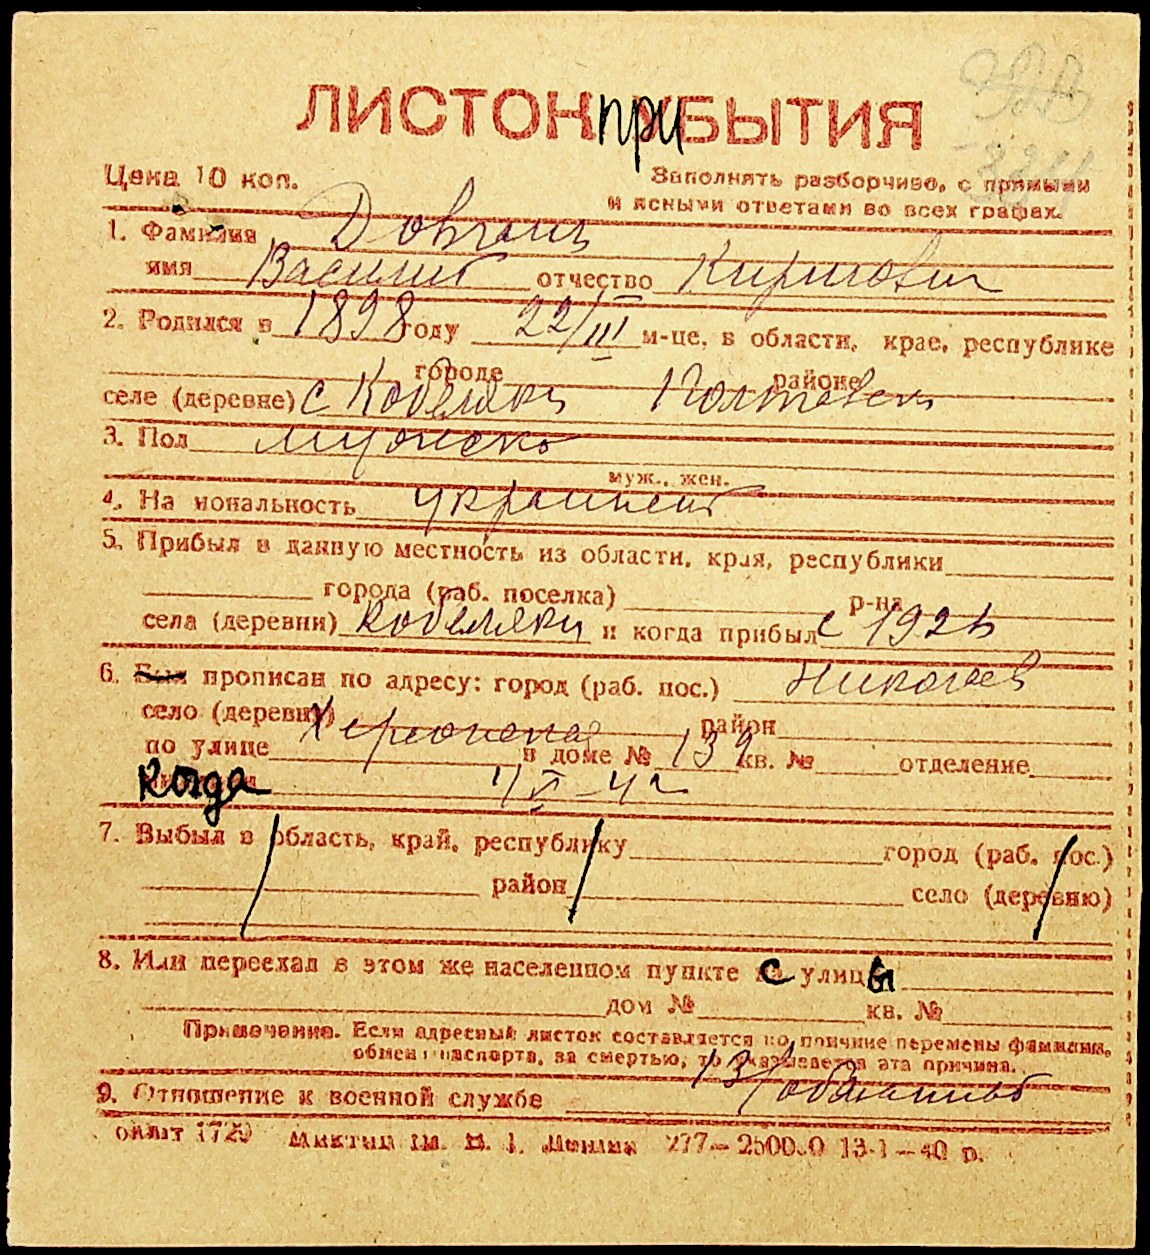 ЛИСТОК ПРИБЫТИЯ
Цена 10 коп.
Заполнять разборчиво, с прямыми
и ясными ответами во всех графах.
1. Фамилия Довгань
имя Василий отчество Кирилович
2. Родился в 1898 году 22/III м-це, в области, крае, республике
городе районе
селе (деревне) с Кобеляки Полтавск
3. Пол мужско
муж., жен.
4. На иональность украинец
5. Прибыл в данную местность из области, края, республики
города (раб. поселка) р-на
села (деревни) Кобеляки и когда прибыл с 192
6. Был прописан по адресу: город (раб. пос.) Николаев
село (деревню) район
по улице Херсонская в доме № 139 кв. № отделение
когда
7. Выбыл в область, край, республику город (раб. пос.)
район село (деревню)
8. Или переехал в этом же населенном пункте с улицы
дом № кв. №
Примечание. Если адресный листок составляется по причине перемены фамилии,
обмен паспорта, за смертью, то указывается эта причина.
9. Отношение к военной службе
13-1-40 р.